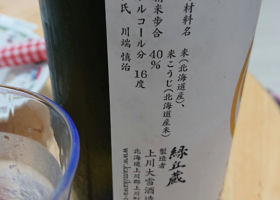 材料名 米(北海道産)、
米こうじ(北海道産米)
精米歩合 40%
アルコール分 16度
氏 川端 慎治
緑丘蔵
製造者
上川大雪酒造
北海道上川郡上川町